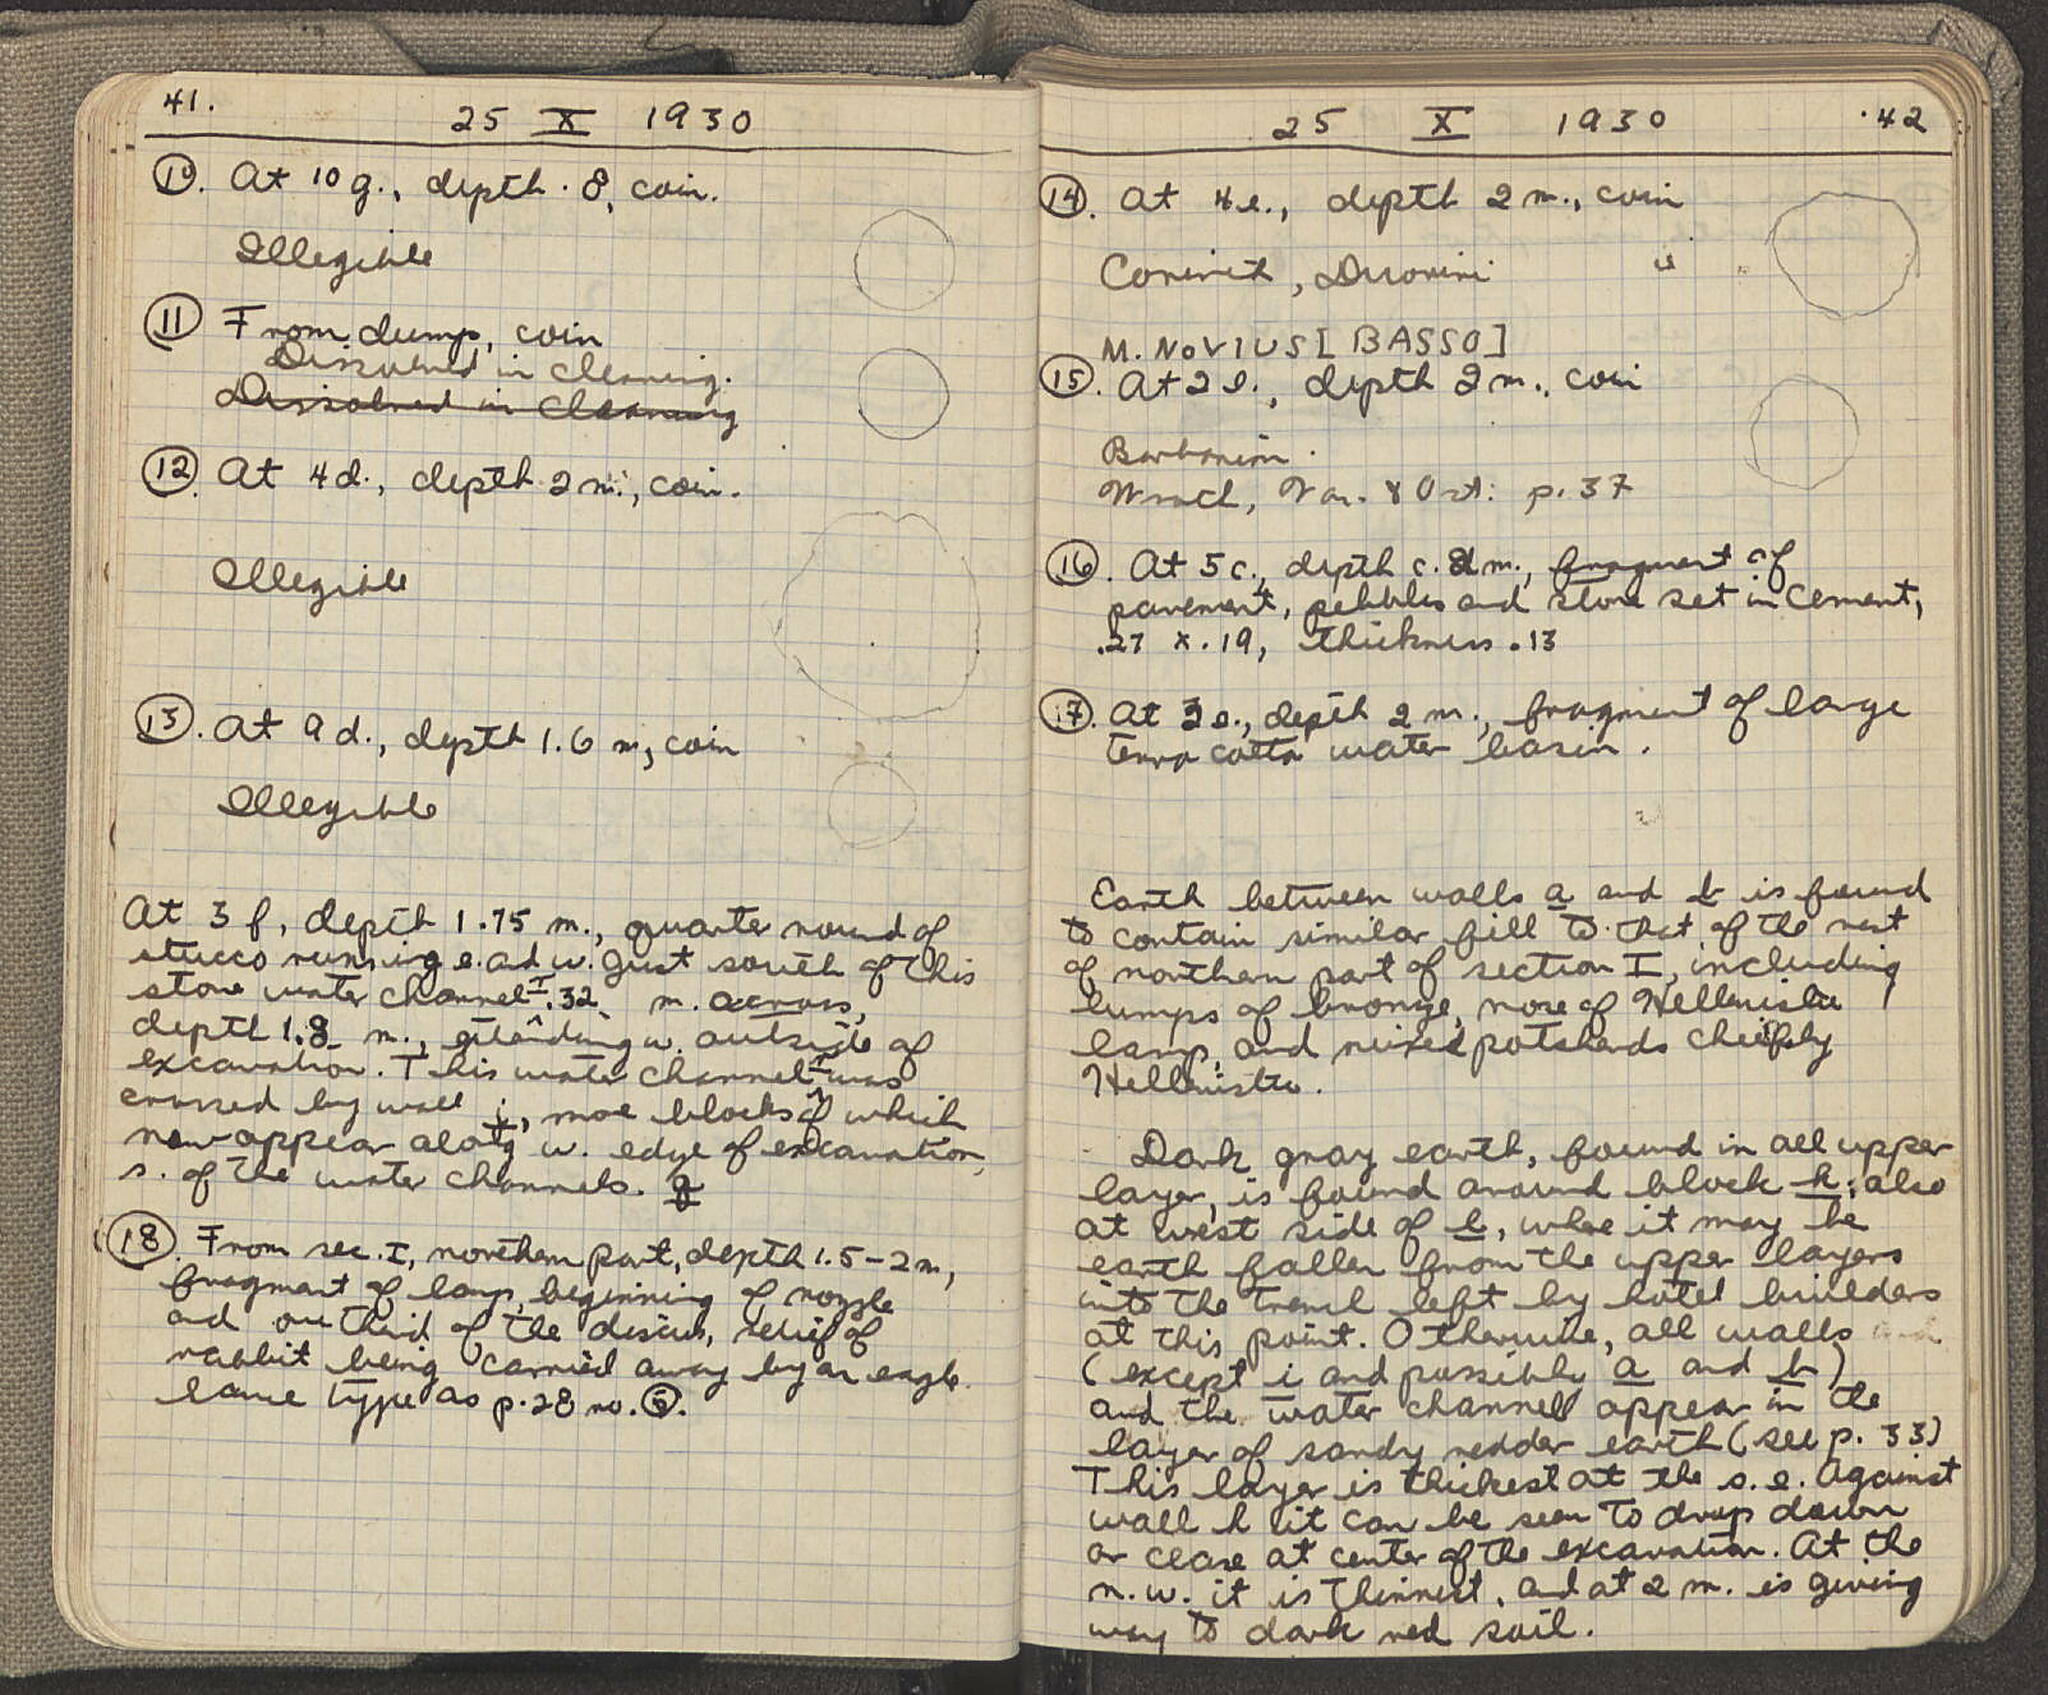 41.
25 X 1930
10. At 10 g., depth .8, coin.
Illegible
11 From dump, coin
Dissolved in cleaning.
Dissolved in cleaning
12. At 4d., depth 2 m., coin.
Illegible
13. At 9 d., depth 1.6 m, coin
Illegible
At 3 f, depth 1.75 m., quarter round of
stucco running e. and w. Just south of this
stone water channel I .32 m. across,
depth 1.8 m., extending w. outside of
excavation. This water channel I was
crossed by wall i, more blocks of which
now appear along w. edge of excavation,
s. of the water channels.
18. From sec. I, northern part, depth 1.5-2 m,
fragment of lamp, beginning of nozzle
and one third of the discus, relief of
rabbit being carried away by an eagle.
Same type as p. 28 no. 6.
25 X 1930
42
14. At 4e., depth 2 m., coin
Corinth, Duoviri
M. NOVIUS [BASSO]
15. At 2 e., depth 2 m., coin
Barbarian.
Wroth, Van. & Ost: p. 37
16. At 5 c., depth c. 2 m., fragment of
pavement, pebbles and stone set in cement,
.27 x .19, thickness .13
17. At 3 e., depth 2 m., fragment of large
terra cotta water basin.
Earth between walls a and b is found
to contain similar fill to that of the rest
of northern part of section I, including
lumps of bronze, nose of Hellenistic
lamp, and mixed potsherds cheifly
Hellenistic.
Dark gray earth, found in all upper
layer, is found around block k; also
at west side of b, where it may be
earth fallen from the upper layers
into the trench left by hotel builders
at this point. Otherwise, all walls
(except i and possibly a and b)
and the water channel appear in the
layer of sandy redder earth (see p. 33)
This layer is thickest at the s.e. Against
wall h it can be seen to drop down
or cease at center of the excavation. At the
n.w. it is thinnest, and at 2 m. is giving
way to dark red soil.